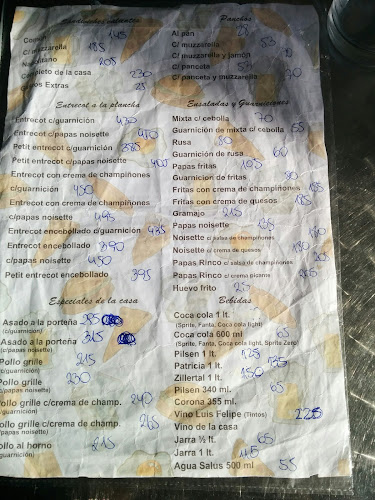 Común 145
C/ muzzarella 185
Napolitano 205
Completo de la casa 230
Extras 25
Entrecot a la plancha
Entrecot c/guarnición 430
Entrecot c/papas noisette 450
Petit entrecot c/guarnición 385
Petit entrecot c/papas noisette 400
Entrecot con crema de champiñones
c/guarnición 450
Entrecot con crema de champiñones
c/papas noisette 495
Entrecot encebollado c/guarnición 435
Entrecot encebollado 390
c/papas noisette 450
Petit entrecot encebollado 395
Especiales de la casa
Asado a la porteña 295
(c/guarnición)
Asado a la porteña 315
(c/papas noisette)
Pollo grille 215
Pollo grille 230
(papas noisette)
Pollo grille c/crema de champ. 240
Pollo grille c/crema de champ. 265
Pollo al horno 215
Panchos
Al pan
C/ muzzarella 53
C/ muzzarella y jamón
C/ panceta 53
C/ panceta y muzzarella 70
Ensaladas y Guarniciones
Mixta c/ cebolla 70
Guarnición de mixta c/ cebolla 55
Rusa 80
Guarnición de rusa 60
Papas fritas 105
Guarnición de fritas 90
Fritas con crema de champiñones 185
Fritas con crema de quesos 185
Gramajo 215
Papas noisette 135
Noisette c/ salsa de champiñones
Noisette c/ crema de quesos 190
Papas Rinco c/ salsa de champiñones
Papas Rinco c/ crema picante 205
Huevo frito 25
Bebidas
Coca cola 1 lt.
(Sprite, Fanta, Coca cola light)
Coca cola 600 ml 65
(Sprite, Fanta, Coca cola light, Sprite Zero)
Pilsen 1 lt. 125
Patricia 1 lt. 135
Zillertal 1 lt. 150
Pilsen 340 ml. 65
Corona 355 ml.
Vino Luis Felipe (Tintos) 225
Vino de la casa
Jarra ½ lt. 65
Jarra 1 lt. 115
Agua Salus 500 ml 55